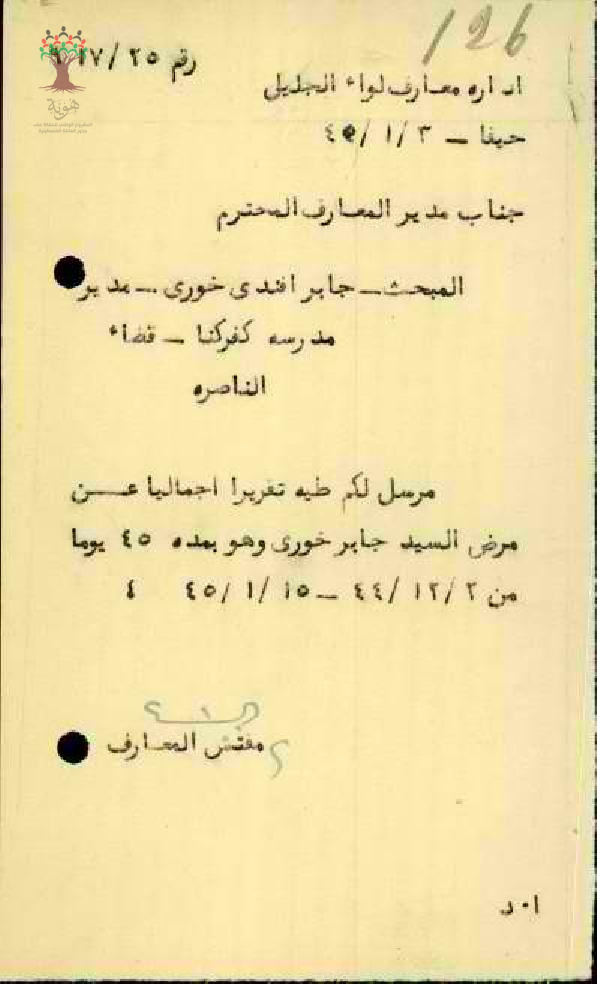 126
رقم ٩١٧/٢٥
اداره معارف لواء الجليل
حيفا – ٤٥/١/٣
جناب مدير المعارف المحترم
المبحث – جابر افندى خورى – مدير
مدرسه كفركنا – قضاء
الناصره
مرسل لكم طيه تقريرا اجماليا عن
مرض السيد جابر خورى وهو بمده ٤٥ يوما
من ٤٤/١٢/٢ – ٤٥/١/١٥ ٤
مفتش المعارف
ا٠د
هوية